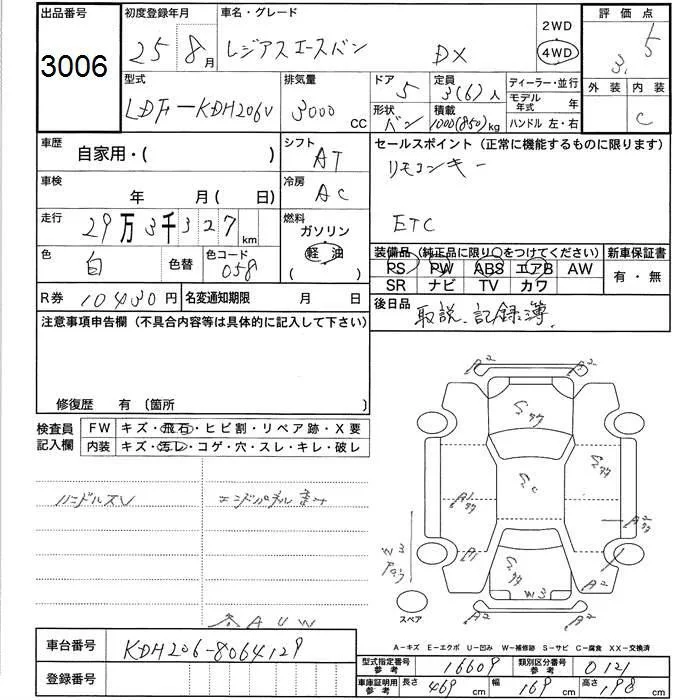 出品番号 初度登録年月 車名・グレード 2WD 評価点
3006 25 8月 レジアスエースバン DX 4WD 3.5
型式 排気量 ドア 定員 ディーラー・並行 外装 内装
LDF-KDH206V 3000 CC 5 3(6)人 モデル年式 年
形状 積載 ハンドル 左・右 C
バン 1000(850)kg
車歴 自家用・( ) シフト AT セールスポイント(正常に機能するものに限ります)
車検 年 月( 日) 冷房 AC リモコンキー
走行 29万3千327km 燃料 ガソリン ETC
軽油
( )
色 白 色替 色コード 058 装備品(純正品に限り○をつけてください) 新車保証書
PS PW ABS エアB AW 有・無
SR ナビ TV カワ
R券 10430円 名変通知期限 月 日 後日品 取説.記録簿
注意事項申告欄(不具合内容等は具体的に記入して下さい)
修復歴 有 〔箇所 〕
検査員記入欄 FW キズ・飛石・ヒビ割・リペア跡・X要
内装 キズ・汚レ・コゲ・穴・スレ・キレ・破レ
ハンドルスレ
各AUW
A2 A2
S
S S
C
A1
A2
W3
A1
S
W3
A2
A2 A2
スペア
A-キズ E-エクボ U-凹み W-補修跡 S-サビ C-腐食 XX-交換済
車台番号 KDH206-8064129
登録番号
型式指定番号 参考 16609 類別区分番号 参考 0121
車庫証明用 参考 長さ 469cm 幅 169cm 高さ 198cm